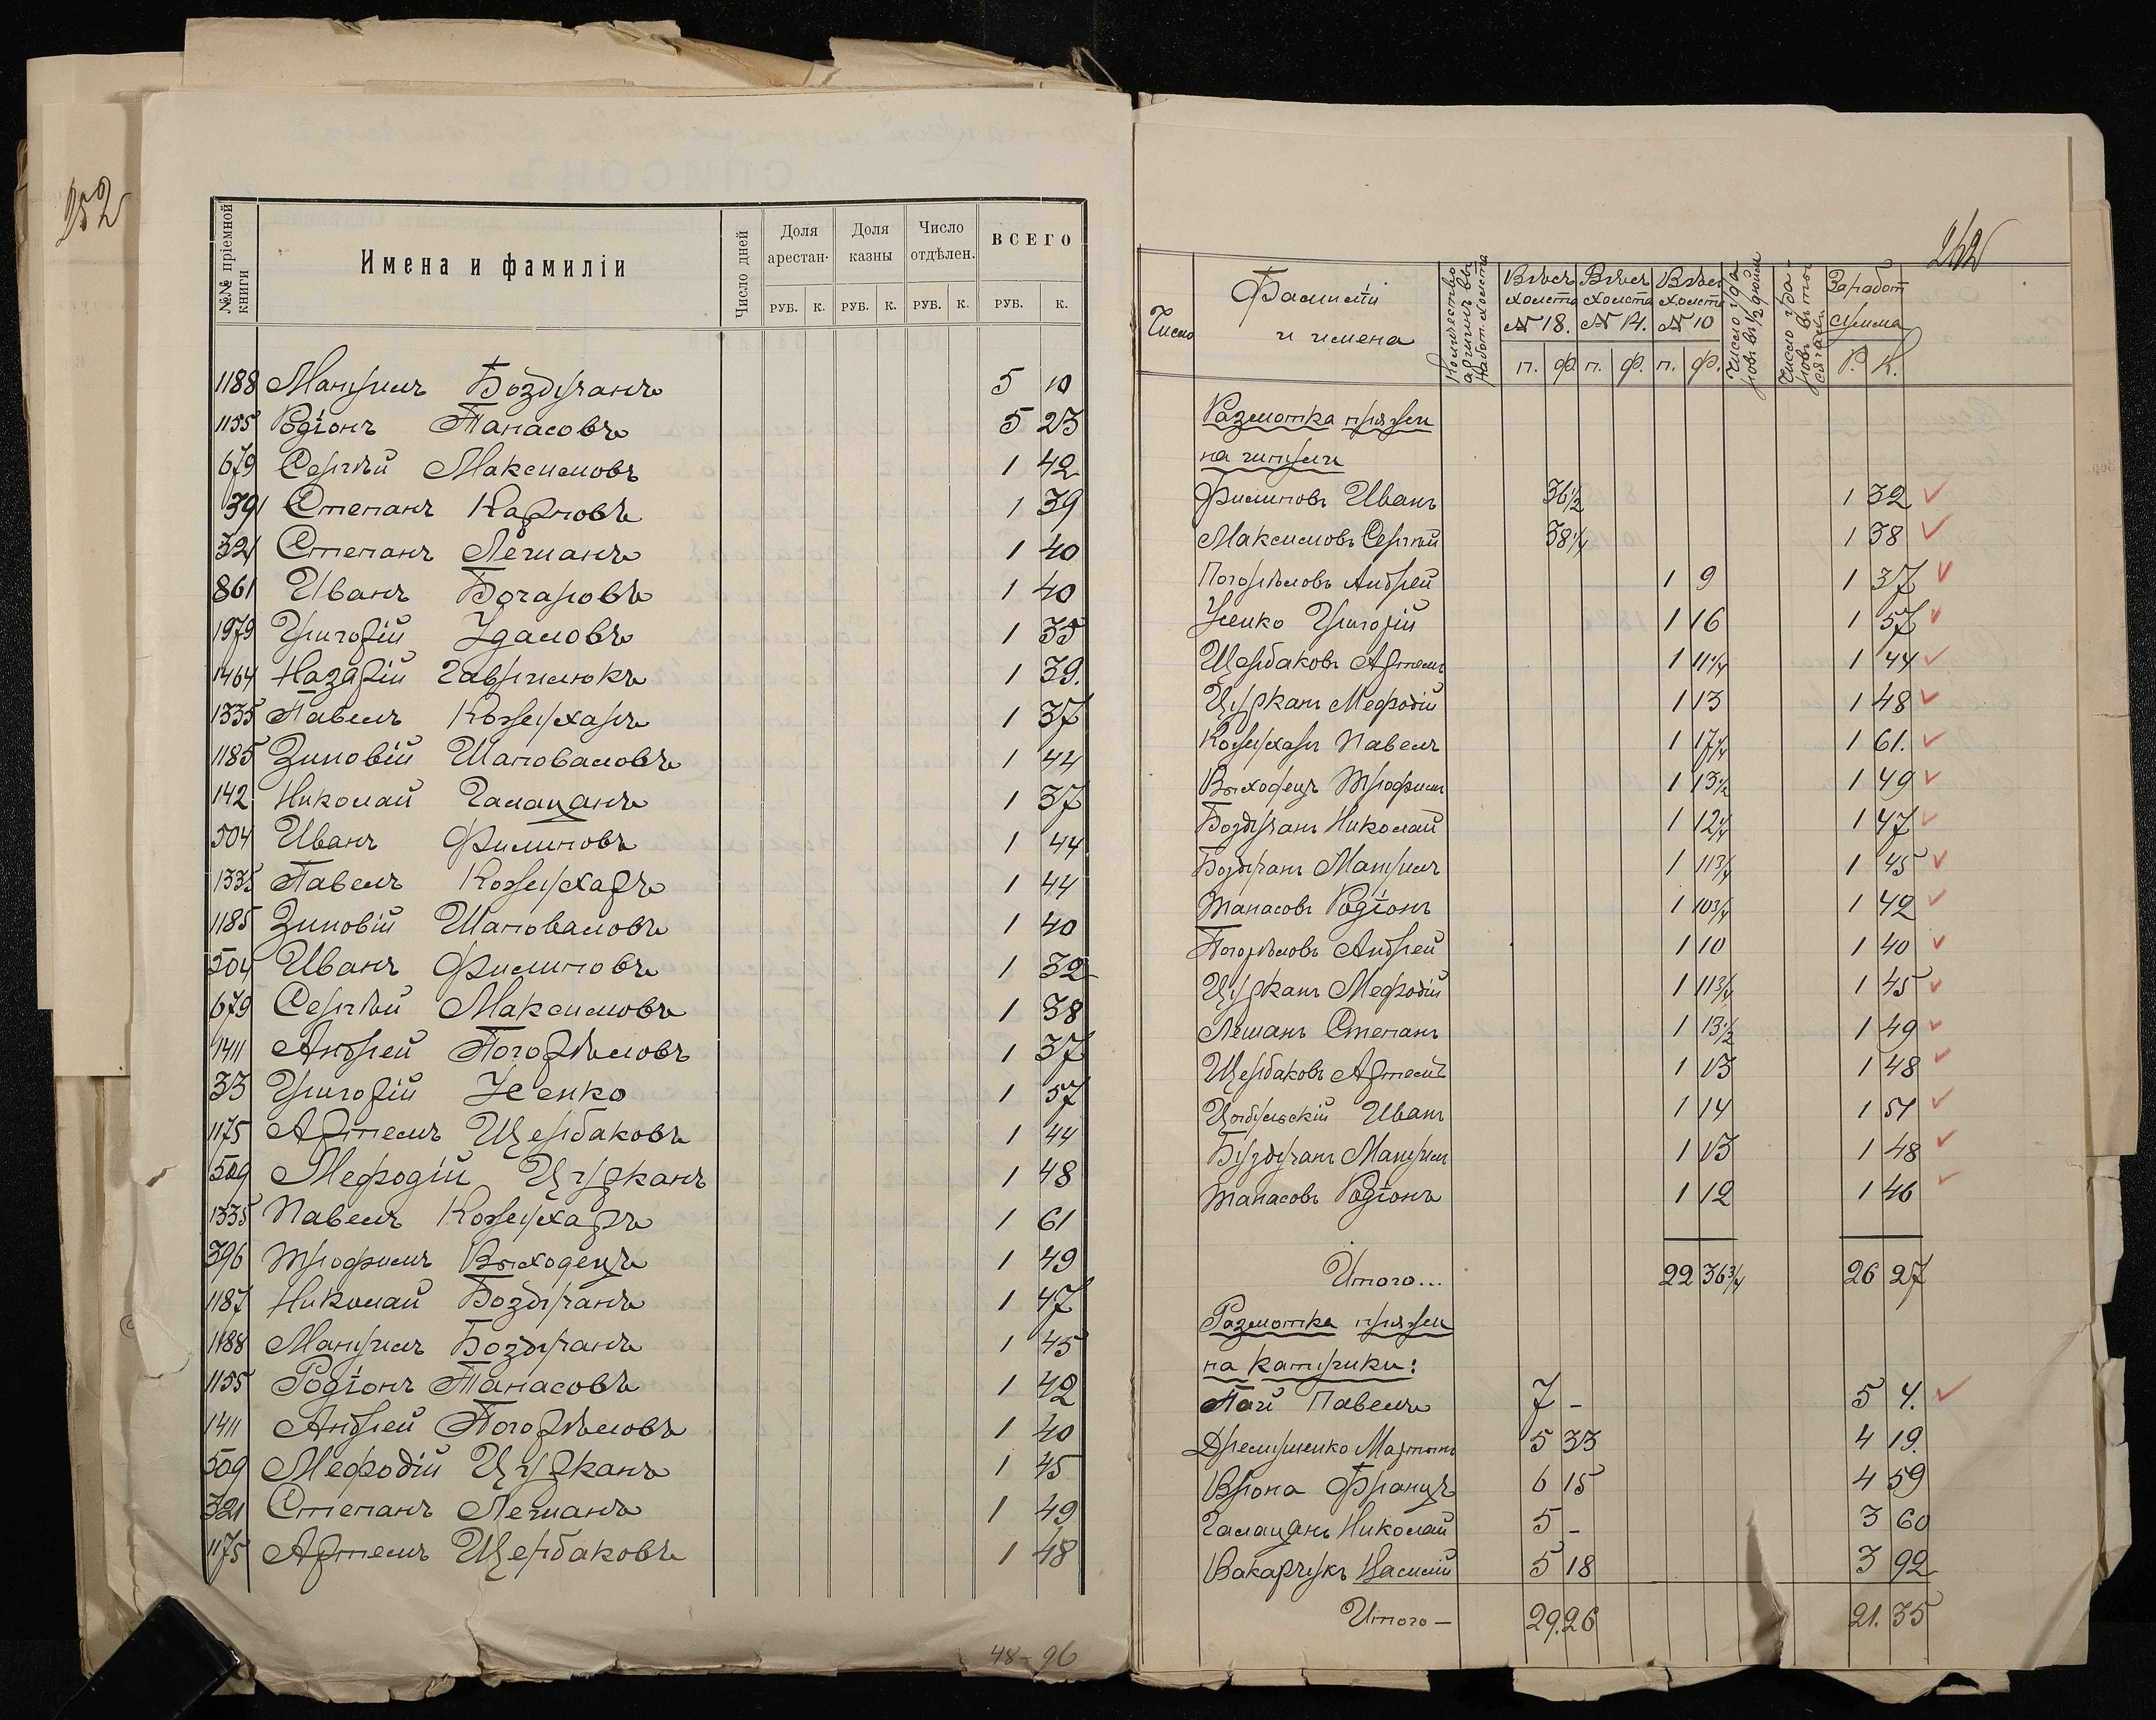 252
№№ пріемной книги
Имена и фамиліи
Число дней
Доля арестан.
Доля казны
Число отдѣлен.
ВСЕГО
РУБ. К. РУБ. К. РУБ. К. РУБ. К.
1188 Мануилъ Боздуганъ 5 10
1155 Родіонъ Танасовъ 5 23
679 Сергѣй Максимовъ 1 42
391 Степанъ Карповъ 1 39
321 Степанъ Лешанъ 1 40
861 Иванъ Бочаровъ 1 40
1979 Григорій Удаловъ 1 35
1464 Назарій Гаврилюкъ 1 39.
1335 Павелъ Кожухарь 1 37
1185 Зиновій Шаповаловъ 1 44
142 Николай Галацанъ 1 37
504 Иванъ Филиповъ 1 44
1335 Павелъ Кожухарь 1 44
1185 Зиновій Шаповаловъ 1 40
504 Иванъ Филиповъ 1 32
679 Сергѣй Максимовъ 1 38
1411 Андрей Погорѣловъ 1 37
33 Григорій Усенко 1 57
1175 Артемъ Щербаковъ 1 44
509 Мефодій Цурканъ 1 48
1335 Павелъ Кожухарь 1 61
396 Трофимъ Выходецъ 1 49
1187 Николай Боздуганъ 1 47
1188 Мануилъ Боздуганъ 1 45
1155 Родіонъ Танасовъ 1 42
1411 Андрей Погорѣловъ 1 40
509 Мефодій Цурканъ 1 45
321 Степанъ Лешанъ 1 49
1175 Артемъ Щербаковъ 1 48
48-96
Число
Фамиліи и имена
Количество аршинъ выработ. холста
Вѣсъ холста № 18.
Вѣсъ холста № 14.
Вѣсъ холста № 10
Заработ сумма
п. ф. п. ф. п. ф. Р. К.
Размотка пряжи
на шпули
Филиповъ Иванъ 36½ 1 32
Максимовъ Сергѣй 38¼ 1 38
Погорѣловъ Андрей 1 9 1 37
Усенко Григорій 1 16 1 57
Щербаковъ Артемъ 1 11¼ 1 44
Цурканъ Мефодій 1 13 1 48
Кожухарь Павелъ 1 17¾ 1 61.
Выходецъ Трофимъ 1 13½ 1 49
Боздуганъ Николай 1 12¾ 1 47
Боздуганъ Мануилъ 1 11¾ 1 45
Танасовъ Родіонъ 1 10¾ 1 42
Погорѣловъ Андрей 1 10 1 40
Цурканъ Мефодій 1 11¾ 1 45
Лешанъ Степанъ 1 13½ 1 49
Щербаковъ Артемъ 1 13 1 48
Цыбульскій Иванъ 1 14 1 51
Буздуганъ Мануилъ 1 13 1 48
Танасовъ Родіонъ 1 12 1 46
Итого... 22 36¾ 26 27
Размотка пряжи
на катушки:
Пай Павелъ 7 - 5 4.
Мартынъ 5 33 4 19.
Врона Францъ 6 15 4 59
Галацанъ Николай 5 - 3 60
Вакарчукъ Василій 5 18 3 92
Итого - 29.26 21.35